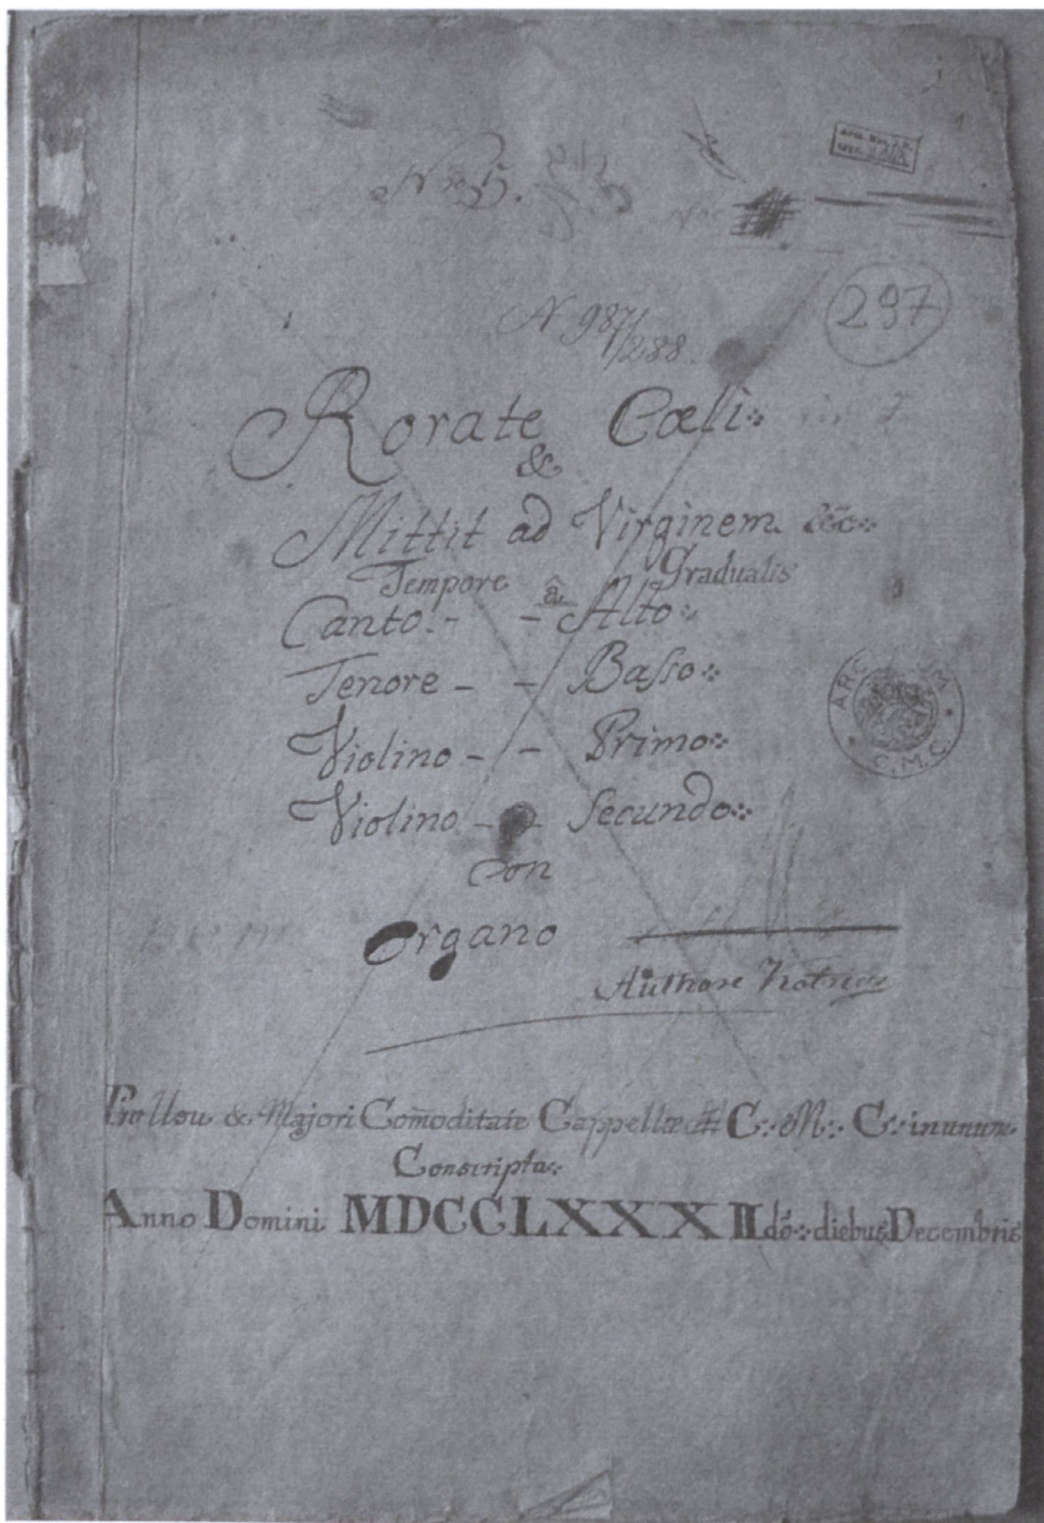 297
N 987/288
Rorate Cœli
&
Mittit ad Virginem &c
Tempore Gradualis
â
Canto - - Alto
Tenore - - Basso
Violino - - Primo
Violino - - Secundo
Con
Organo
Authore
ARC
C.M.C.
Pro Usu & Majori Com̄oditate Cappellæ C: M: C: inunum
Conscripta
Anno Domini MDCCLXXXIIdō diebus Decembris